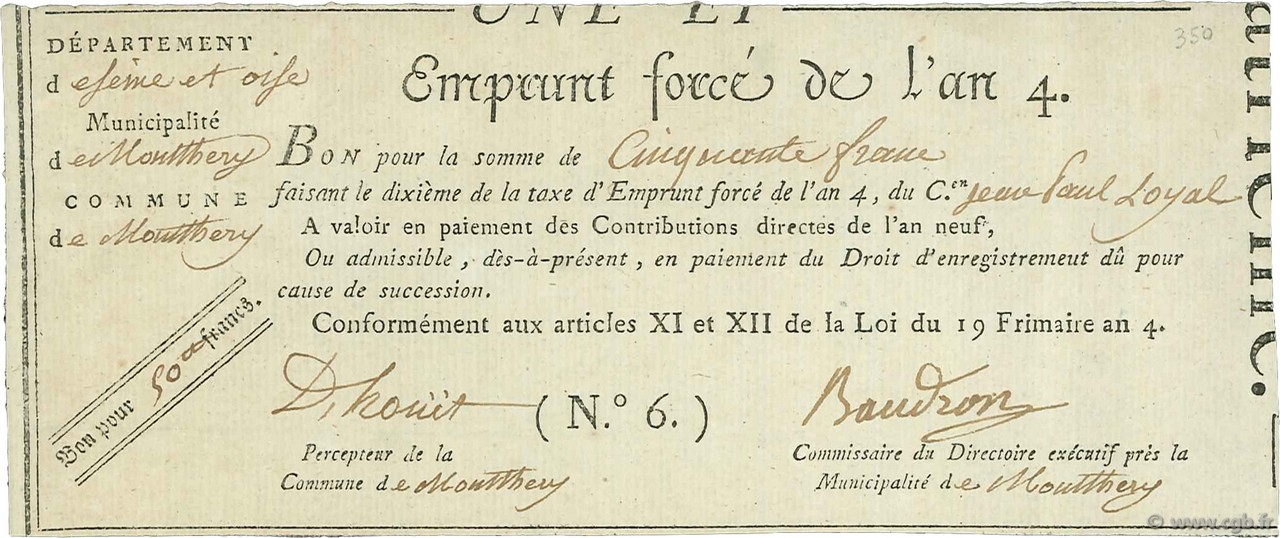 UNE ET
350
DÉPARTEMENT
d eseine et oise
Municipalité
d e Montlhery
COMMUNE
d e Montlhery
Bon pour 50 francs.
Emprunt forcé de l'an 4.
BON pour la somme de Cinquante franc
faisant le dixième de la taxe d'Emprunt forcé de l'an 4, du C.en Jean Paul Loyal
A valoir en paiement des Contributions directes de l'an neuf,
Ou admissible, dès-à-présent, en paiement du Droit d'enregistrement dû pour
cause de succession.
Conformément aux articles XI et XII de la Loi du 19 Frimaire an 4.
(N.° 6.)
Baudron
Percepteur de la
Commune d e Montlhery
Commissaire du Directoire exécutif près la
Municipalité d e Montlhery
© www.cgb.fr